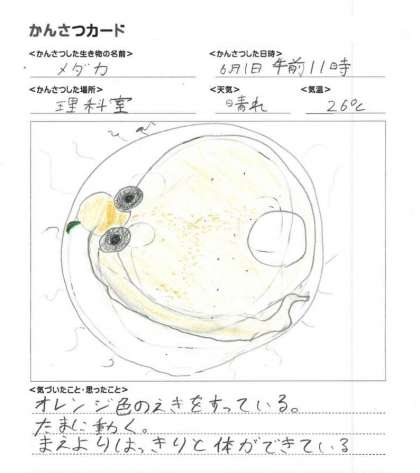 かんさつカード
<かんさつした生き物の名前> <かんさつした日時>
メダカ 6月1日 午前11時
<かんさつした場所> <天気> <気温>
理科室 晴れ 26℃
<気づいたこと・思ったこと>
オレンジ色のえきをすっている。
たまに動く。
まえよりはっきりと体ができている